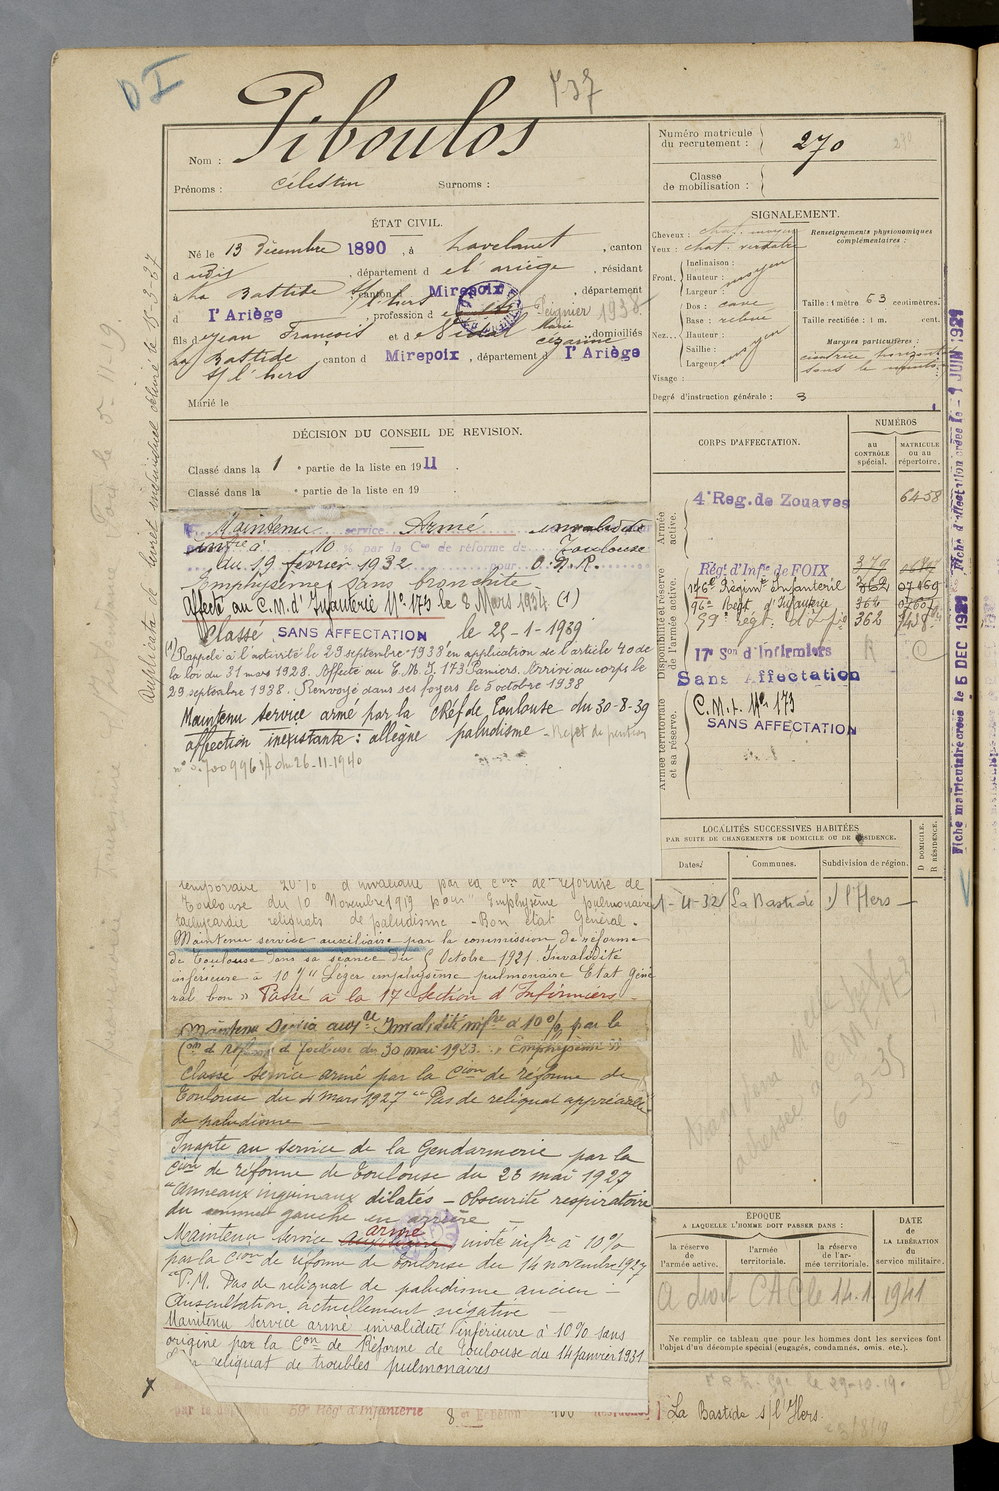 DI
Piboulos
Nom :
Prénoms : Célestin Surnoms :
Numéro matricule
du recrutement : 270
270
Classe
de mobilisation :
ÉTAT CIVIL.
Né le 13 Décembre 1890, à Lavelanet, canton
d udit, département d el ariège, résidant
à La Bastide s/ l'hers, canton d Mirepoix, département
d l'Ariège, profession d Peignier 1938
fils de Jean François et de Vidal Marie Cézarine, domiciliés
La Bastide s/ l'hers canton d Mirepoix, département d l'Ariège
Marié le
SIGNALEMENT.
Cheveux : chat. moyen
Yeux : chat. verdatre
Front. Inclinaison :
Hauteur : moyen
Largeur :
Nez. Dos : cave
Base : relevé
Hauteur :
Saillie : moyen
Largeur :
Visage :
Renseignements physionomiques
complémentaires :
Taille : 1 mètre 63 centimètres.
Taille rectifiée : 1 m. cent.
Marques particulières :
cicatrice
sous le menton
Degré d'instruction générale : 3
DÉCISION DU CONSEIL DE REVISION.
Classé dans la 1e partie de la liste en 1911.
Classé dans la e partie de la liste en 19 .
Maintenu service Armé invalidité
infre à 10 % par la Con de réforme de Toulouse
du 19 février 1932 pour
Emphysème sans bronchite
Affecté au C.M. d'Infanterie No 173 le 8 Mars 1934 (1)
Classé SANS AFFECTATION le 25-1-1939
(1) Rappelé à l'activité le 29 septembre 1938 en application de l'article 40 de
la loi du 31 mars 1928. Affecté au C.M.I. 173 Pamiers. Arrivé au corps le
29 septembre 1938. Renvoyé dans ses foyers le 5 octobre 1938
Maintenu service armé par la CR de Toulouse du 30-8-39
affection inexistante : allègue paludisme - Rejet de pension
du 26-11-1940
temporaire 20% d'invalidité par la Con de réforme de
Toulouse du 10 Novembre 1919 pour "Emphysème pulmonaire
tachycardie reliquats de paludisme - Bon état Général.
Maintenu service auxiliaire par la commission de réforme
de Toulouse dans sa séance du 5 Octobre 1921. Invalidité
inférieure à 10% "Léger emphysème pulmonaire Etat géné
ral bon" Passé à la 17e Section d'Infirmiers
Maintenu Service auxre Invalidité infre à 10% par la
Con de réforme de Toulouse du 30 mai 1923. "Emphysème"
Classé service armé par la Cion de réforme de
Toulouse du 4 mars 1927 "Pas de reliquat appréciable
de paludisme
Inapte au service de la Gendarmerie par la
Cion de réforme de Toulouse du 23 mai 1927
"Anneaux inguinaux dilatés - Obscurité respiratoire
du sommet gauche en arrière
Maintenu Service auxiliaire armé invté infre à 10%
par la Cion de réforme de Toulouse du 14 novembre 1927
"P.M. Pas de reliquat de paludisme ancien -
Auscultation, actuellement négative
Maintenu service armé invalidité inférieure à 10% sans
origine par la Con de Réforme de Toulouse du 14 janvier 1931
reliquat de troubles pulmonaires
59e Rég. d'Infanterie 8e Echelon
La Bastide s/ l'Hers
CORPS D'AFFECTATION.
NUMÉROS
au
CONTRÔLE
spécial.
MATRICULE
ou au
répertoire.
Armée
active.
4e Reg. de Zouaves 6458
Disponibilité et réserve
de l'armée active.
Régt d'Infie de FOIX 379
146e Régimt Infanterie 362
96e Regt d'Infanterie 362
59e régt d'Infie 362
17e Son d'Infirmiers R C
Sans Affectation
Armée territoriale
et sa réserve.
C.M.I. No 173
SANS AFFECTATION
LOCALITÉS SUCCESSIVES HABITÉES
PAR SUITE DE CHANGEMENTS DE DOMICILE OU DE RÉSIDENCE.
Dates. Communes. Subdivision de région. D DOMICILE. R RÉSIDENCE.
1-4-32 La Bastide s/ l'Hers
6-3-35
ÉPOQUE
A LAQUELLE L'HOMME DOIT PASSER DANS :
la réserve
de
l'armée active.
l'armée
territoriale.
la réserve
de l'ar-
mée territoriale.
DATE
de
LA LIBÉRATION
du
service militaire.
A droit CAC le 14.1.1941
Ne remplir ce tableau que pour les hommes dont les services font
l'objet d'un décompte spécial (engagés, condamnés, omis, etc.).
Duplicata de livret individuel délivré le 15-3-27
Fiche matriculaire créée le 5 DEC 1921 Fiche d'affectation créée le - 1 JUIN 1921